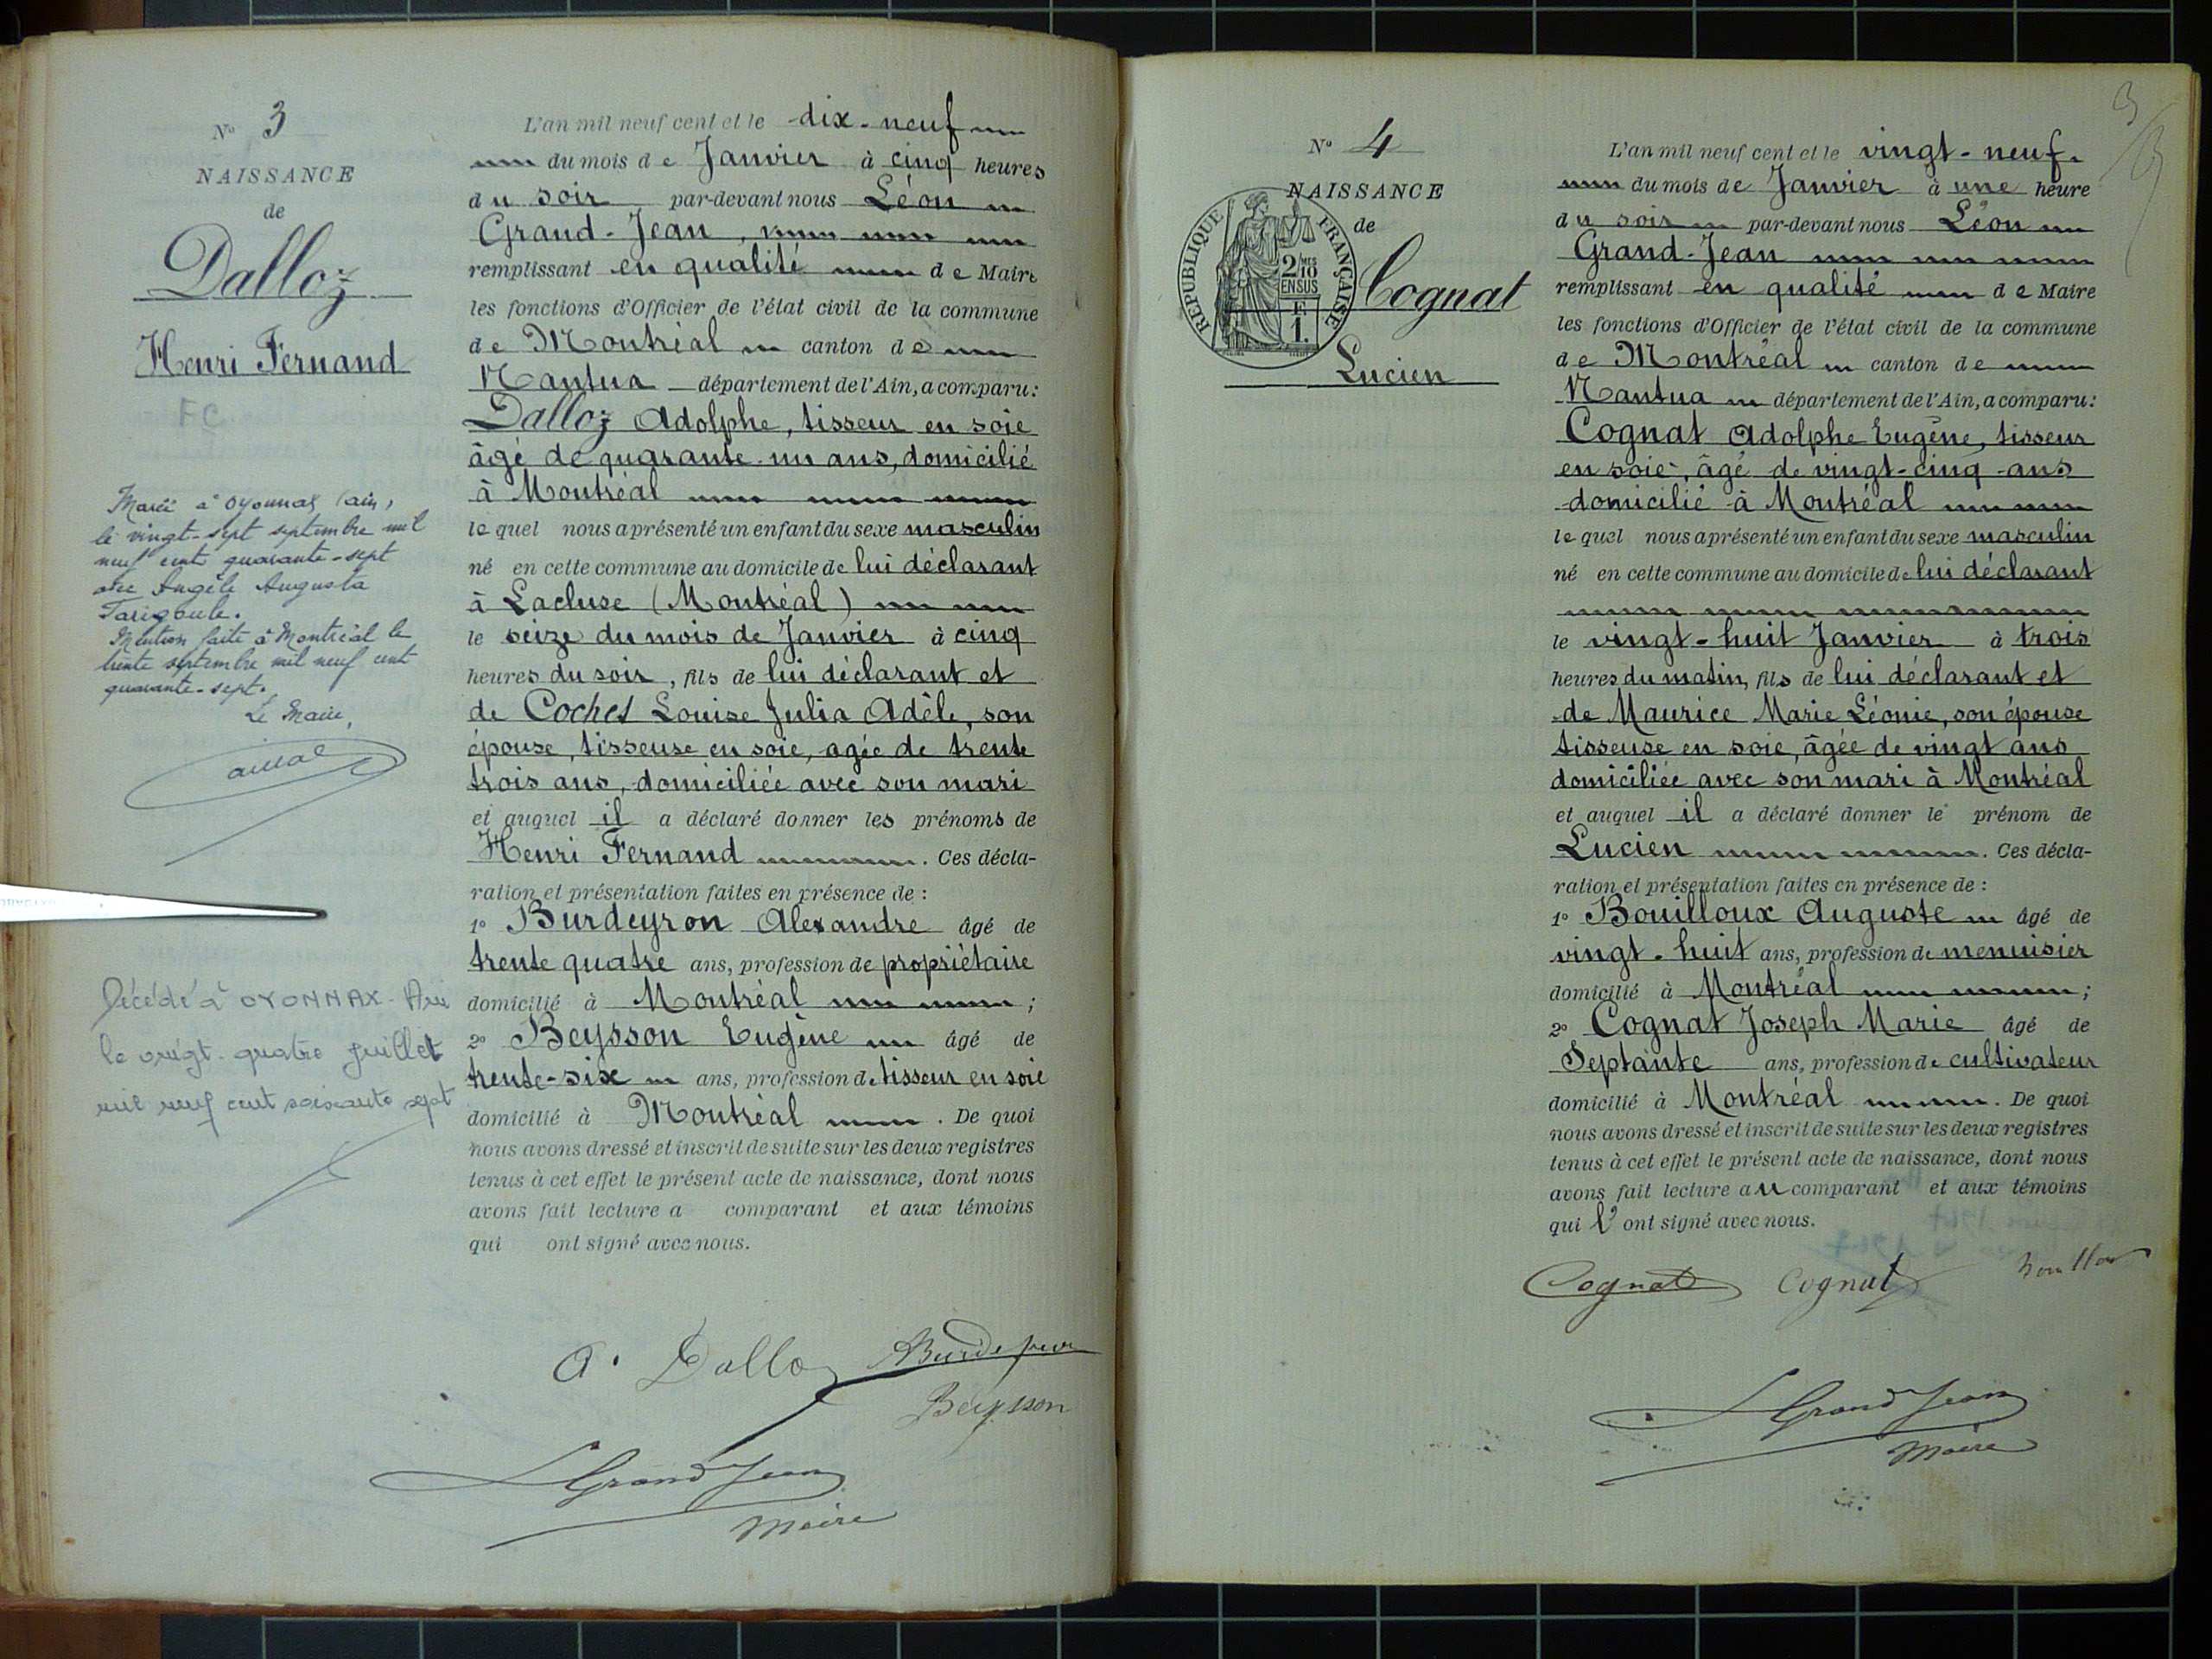 N° 3
NAISSANCE
de
Dalloz
Henri Fernand
FC
Marié à Oyonnax (Ain)
le vingt-sept septembre mil
neuf cent quarante-sept
avec Angèle Augusta
Mention faite à Montréal le
trente septembre mil neuf cent
quarante-sept.
Le Maire,
Décédé à OYONNAX - Ain
le vingt-quatre juillet
mil neuf cent soixante sept
L'an mil neuf cent et le dix-neuf
du mois de Janvier à cinq heures
du soir par-devant nous Léon
Grand-Jean,
remplissant en qualité de Maire
les fonctions d'Officier de l'état civil de la commune
de Montréal canton de
Nantua département de l'Ain, a comparu:
Dalloz Adolphe, tisseur en soie
âgé de quarante-un ans, domicilié
à Montréal
lequel nous a présenté un enfant du sexe masculin
né en cette commune au domicile de lui déclarant
à Lacluse (Montréal)
le seize du mois de Janvier à cinq
heures du soir, fils de lui déclarant et
de Cochet Louise Julia Adèle, son
épouse, tisseuse en soie, agée de trente
trois ans, domiciliée avec son mari
et auquel il a déclaré donner les prénoms de
Henri Fernand. Ces décla-
ration et présentation faites en présence de :
1° Burdeyron Alexandre âgé de
trente quatre ans, profession de propriétaire
domicilié à Montréal ;
2° Beysson Eugène âgé de
trente-six ans, profession de tisseur en soie
domicilié à Montréal. De quoi
nous avons dressé et inscrit de suite sur les deux registres
tenus à cet effet le présent acte de naissance, dont nous
avons fait lecture a comparant et aux témoins
qui ont signé avec nous.
A. Dalloz Burdeyron
Beysson
L Grand Jean
Maire
3
N° 4
NAISSANCE
de
RÉPUBLIQUE FRANÇAISE
2/10 MES
EN SUS
F.
1.
Cognat
Lucien
L'an mil neuf cent et le vingt-neuf
du mois de Janvier à une heure
du soir par-devant nous Léon
Grand-Jean
remplissant en qualité de Maire
les fonctions d'Officier de l'état civil de la commune
de Montréal canton de
Nantua département de l'Ain, a comparu:
Cognat Adolphe Eugène, tisseur
en soie, âgé de vingt-cinq ans
domicilié à Montréal
lequel nous a présenté un enfant du sexe masculin
né en cette commune au domicile de lui déclarant
le vingt-huit Janvier à trois
heures du matin, fils de lui déclarant et
de Maurice Marie Léonie, son épouse
tisseuse en soie, âgée de vingt ans
domiciliée avec son mari à Montréal
et auquel il a déclaré donner le prénom de
Lucien. Ces décla-
ration et présentation faites en présence de :
1° Bouilloux Auguste âgé de
vingt-huit ans, profession de menuisier
domicilié à Montréal ;
2° Cognat Joseph Marie âgé de
Septante ans, profession de cultivateur
domicilié à Montréal. De quoi
nous avons dressé et inscrit de suite sur les deux registres
tenus à cet effet le présent acte de naissance, dont nous
avons fait lecture au comparant et aux témoins
qui l'ont signé avec nous.
Cognat Cognat
L Grand Jean
Maire